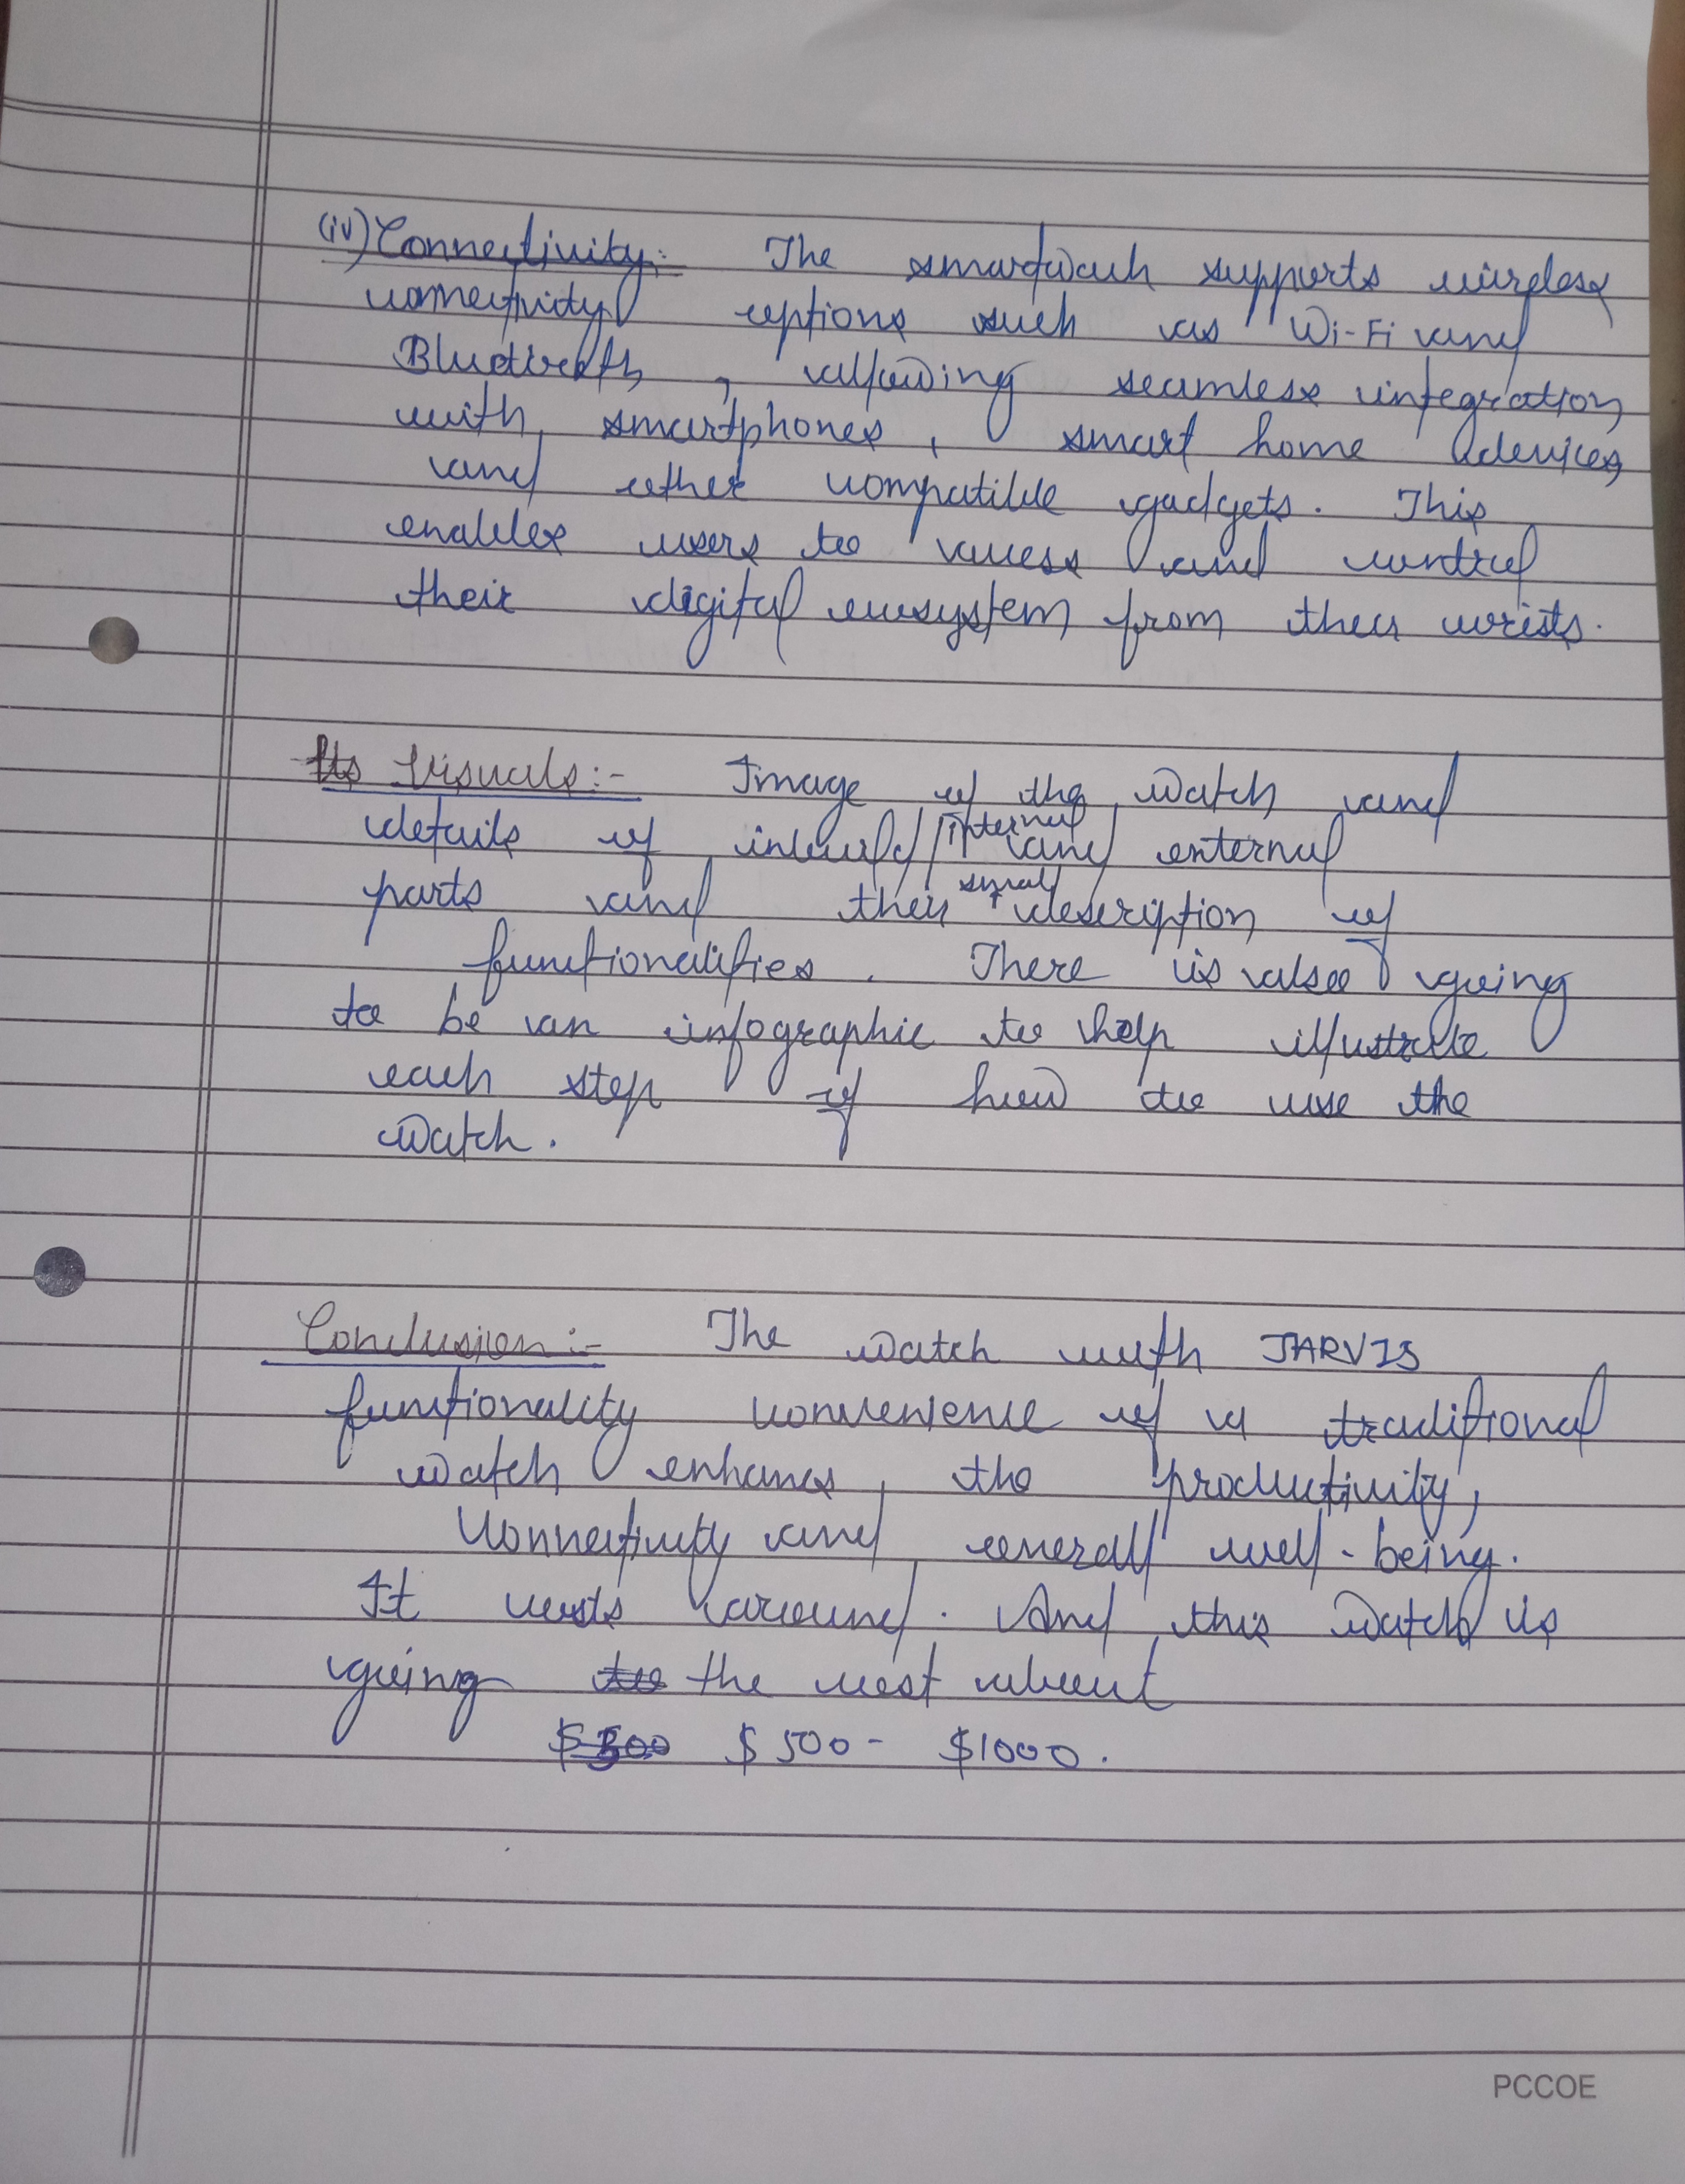 (iv) Connectivity:- The smartwach supports wireless
connectivity options such as Wi-Fi and
Bluetooth, allowing seamless integration
with smartphones, smart home devices
and other compatible gadgets. This
enables users to access and control
their digital ecosystem from their wrists.
Its Visuals:- Image of the watch and
details of inbuild/internal and external
parts and their small description of
functionalities. There is also going
to be an infographic to help illustrate
each step of how to use the
watch.
Conclusion:- The watch with JARVIS
functionality convenience of a traditional
watch enhances the productivity,
Connectivity and overall well-being.
It costs around. And this watch is
going to the cost about
$300 $500 - $1000.
PCCOE